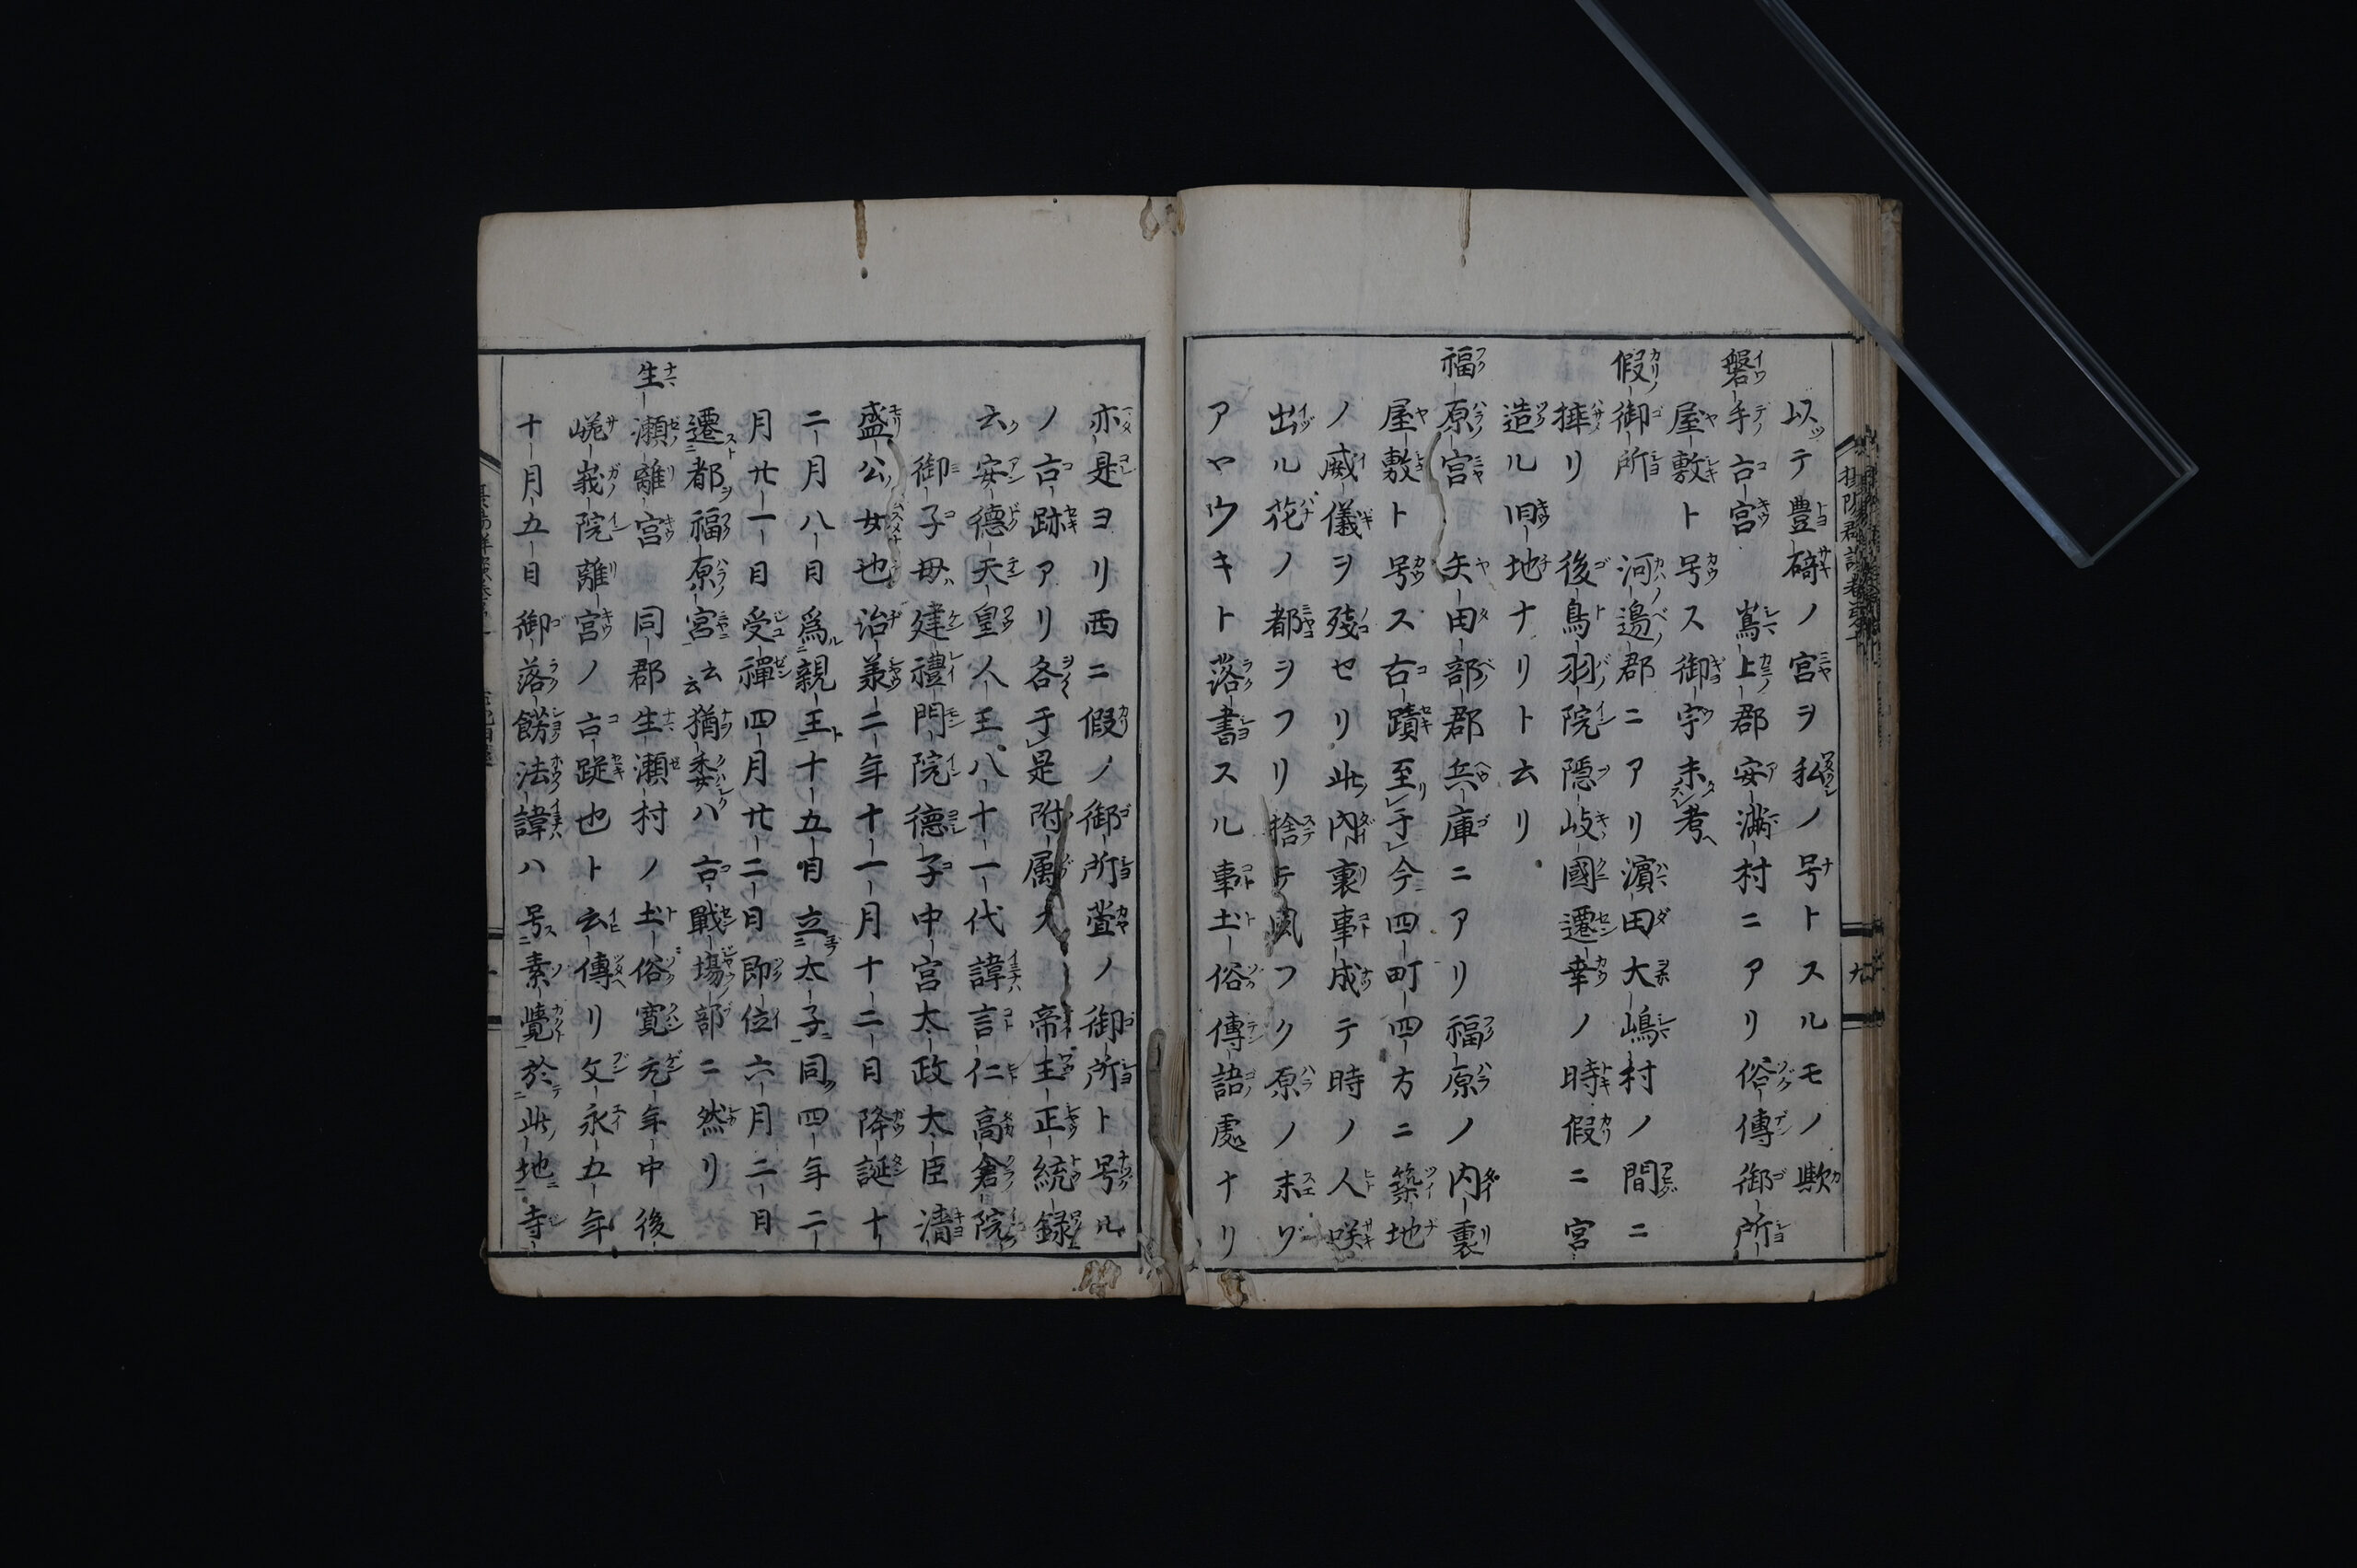 以テ豊碕ノ宮ヲ私ノ号トスルモノ歟
磐手古宮 嶌上郡安満村ニアリ俗傳御所
屋敷ト号ス御宇未考
假御所 河邉郡ニアリ濱田大嶋村ノ間ニ
揷リ後鳥羽院隠岐國遷幸ノ時假ニ宮
造ル旧地ナリト云リ
福原宮 矢田部郡兵庫ニアリ福原ノ内裏
屋敷ト号ス古蹟至于今四町四方ニ築地
ノ威儀ヲ殘セリ此内裏事成テ時ノ人咲
出ル花ノ都ヲフリ捨テ風フク原ノ末ゾ
アヤウキト落書スル事土俗傳語處ナリ
亦是ヨリ西ニ假ノ御所萱ノ御所ト号ル
ノ古跡アリ各于是附属ス 帝王正統録
云安德天皇人王八十一代諱言仁高倉院
御子母建禮門院德子中宮太政大臣清
盛公女也治義二年十一月十二日降誕十
二月八日爲親王十五日立太子同四年二
月廿一日受禪四月廿二日即位六月二日
遷都福原宮云云猶委ハ古戰場部ニ然リ
生瀬離宮 同郡生瀬村ノ土俗寛元年中後
嵯峩院離宮ノ古蹤也ト云傳リ文永五年
十月五日御落餝法諱ハ号素覺於此地寺